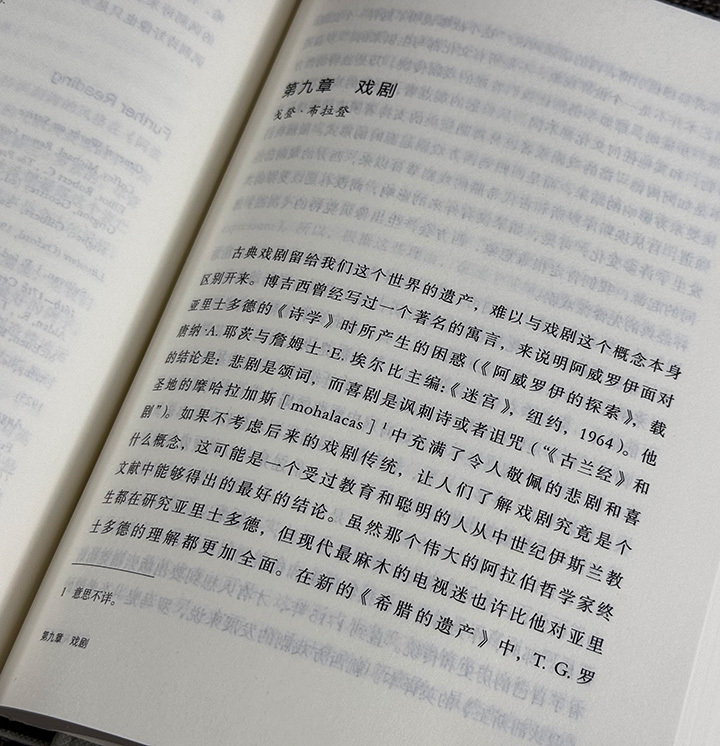 Further Reading
第九章 戏剧
戈登·布拉登
古典戏剧留给我们这个世界的遗产，难以与戏剧这个概念本身
区别开来。博吉西曾经写过一个著名的寓言，来说明阿威罗伊面对
亚里士多德的《诗学》时所产生的困惑（《阿威罗伊的探索》，载
唐纳·A.耶茨与詹姆士·E.埃尔比主编：《迷宫》，纽约，1964）。他
的结论是：悲剧是颂词，而喜剧是讽刺诗或者诅咒（“《古兰经》和
圣地的摩哈拉加斯［mohalacas］¹中充满了令人敬佩的悲剧和喜
剧”）。如果不考虑后来的戏剧传统，让人们了解戏剧究竟是个
什么概念，这可能是一个受过教育和聪明的人从中世纪伊斯兰教
文献中能够得出的最好的结论。虽然那个伟大的阿拉伯哲学家终
生都在研究亚里士多德，但现代最麻木的电视迷也许比他对亚里
士多德的理解都更加全面。在新的《希腊的遗产》中，T. G. 罗
1 意思不详。
第九章 戏剧